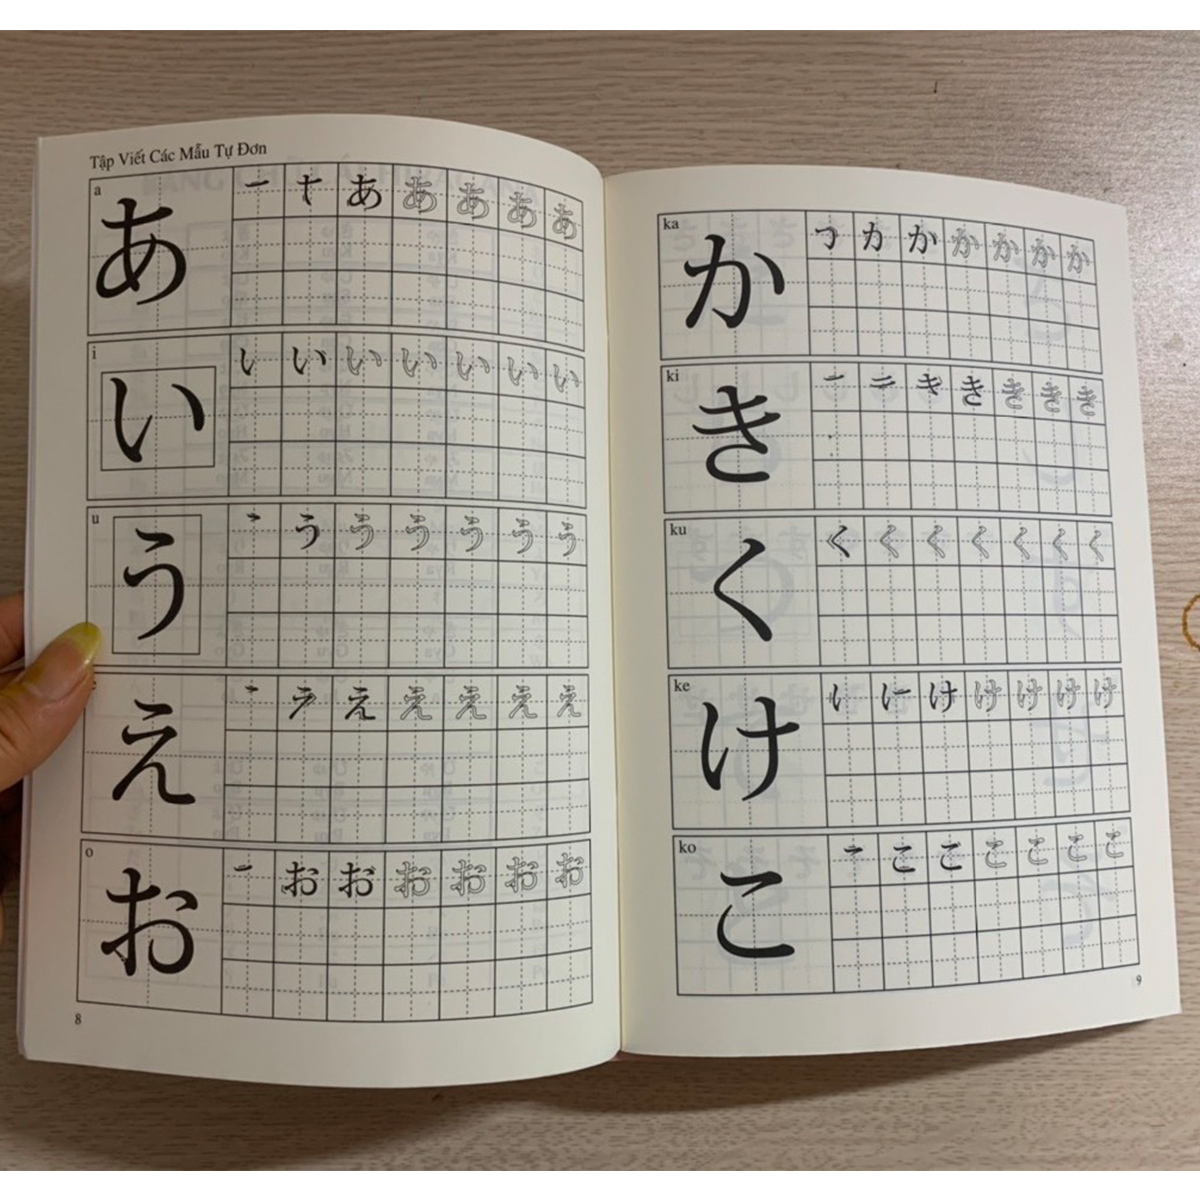 Tập Viết Các Mẫu Tự Đơn
a
あ 一 十 あ あ あ あ あ
i
い い い い い い い
u
う う う う う う う
え え え え え え
o
お 一 お お お お お お
8
ka
か つ カ か か か か か
ki
き 一 二 キ き き き き
ku
く く く く く く く く
ke
け い け け け け け
ko
こ こ こ こ こ こ こ
9